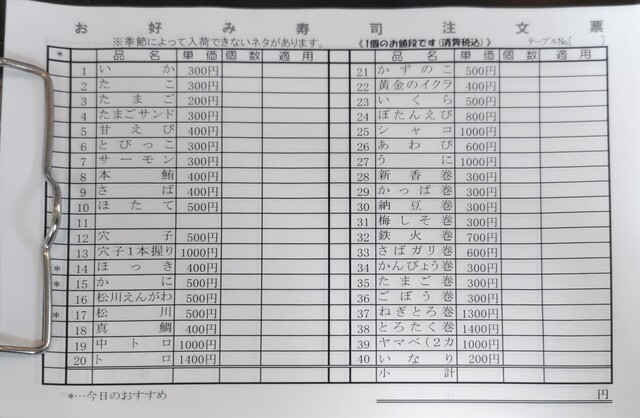 お好み寿司注文票
※季節によって入荷できないネタがあります。 (1個のお値段です(消費税込)) テーブルNo.[ ]
* 品名 単価 個数 適用
1 いか 300円
2 たこ 300円
3 たまご 200円
4 たまごサンド 300円
5 甘えび 400円
6 とびっこ 300円
7 サーモン 300円
8 本鮪 400円
9 さば 400円
10 ほたて 500円
11
12 穴子 500円
13 穴子1本握り 1000円
* 14 ほっき 400円
* 15 かに 500円
16 松川えんがわ 500円
* 17 松川 500円
18 真鯛 400円
19 中トロ 1000円
20 トロ 1400円
品名 単価 個数 適用
21 かずのこ 500円
22 黄金のイクラ 400円
23 いくら 500円
24 ぼたんえび 800円
25 シャコ 1000円
26 あわび 600円
27 うに 1000円
28 新香巻 300円
29 かっぱ巻 300円
30 納豆巻 300円
31 梅しそ巻 300円
32 鉄火巻 700円
33 さばガリ巻 600円
34 かんぴょう巻 300円
35 たまご巻 300円
36 ごぼう巻 300円
37 ねぎとろ巻 1300円
38 とろたく巻 1400円
39 ヤマベ(2カ 1000円
40 いなり 200円
小計
*…今日のおすすめ
円